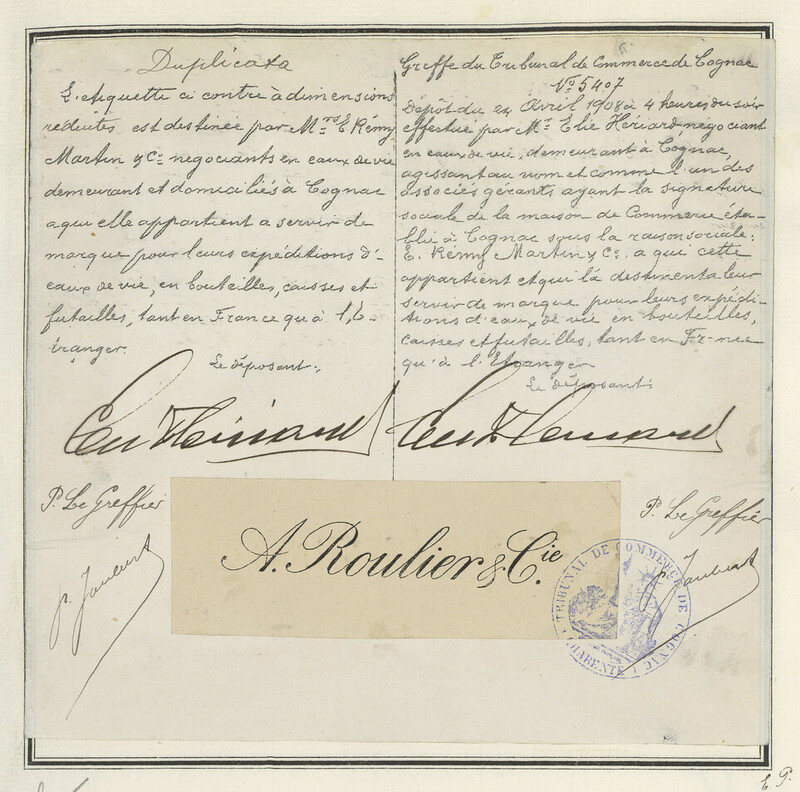 Duplicata
L'etiquette ci contre à dimensions
réduites est destinée par Mrs E. Rémy
Martin & Cie négociants en eaux de vie
demeurant et domiciliés à Cognac
a qui elle appartient a servir de
marque pour leurs expéditions d'-
eaux de vie, en bouteilles, caisses et
futailles, tant en France qu'à l'E-
tranger.
Le déposant.
P. Le Greffier
Greffe du Tribunal de Commerce de Cognac
No 5407
Dépôt du 24 Avril 1908 à 4 heures du soir
effectué par Mr Elie Hériard, négociant
en eaux de vie, demeurant à Cognac,
agissant au nom et comme l'un des
associés gérants ayant la signature
sociale de la maison de Commerce éta-
blie à Cognac sous la raison sociale:
E. Rémy Martin & Co. a qui cette
appartient et qui la destine a leur
servir de marque pour leurs expédi-
tions d'eaux de vie en bouteilles,
caisses et futailles, tant en France
qu'à l'Etranger
Le déposant
P. Le Greffier
A. Roulier & Cie.
TRIBUNAL DE COMMERCE DE COGNAC
CHARENTE
E. P.